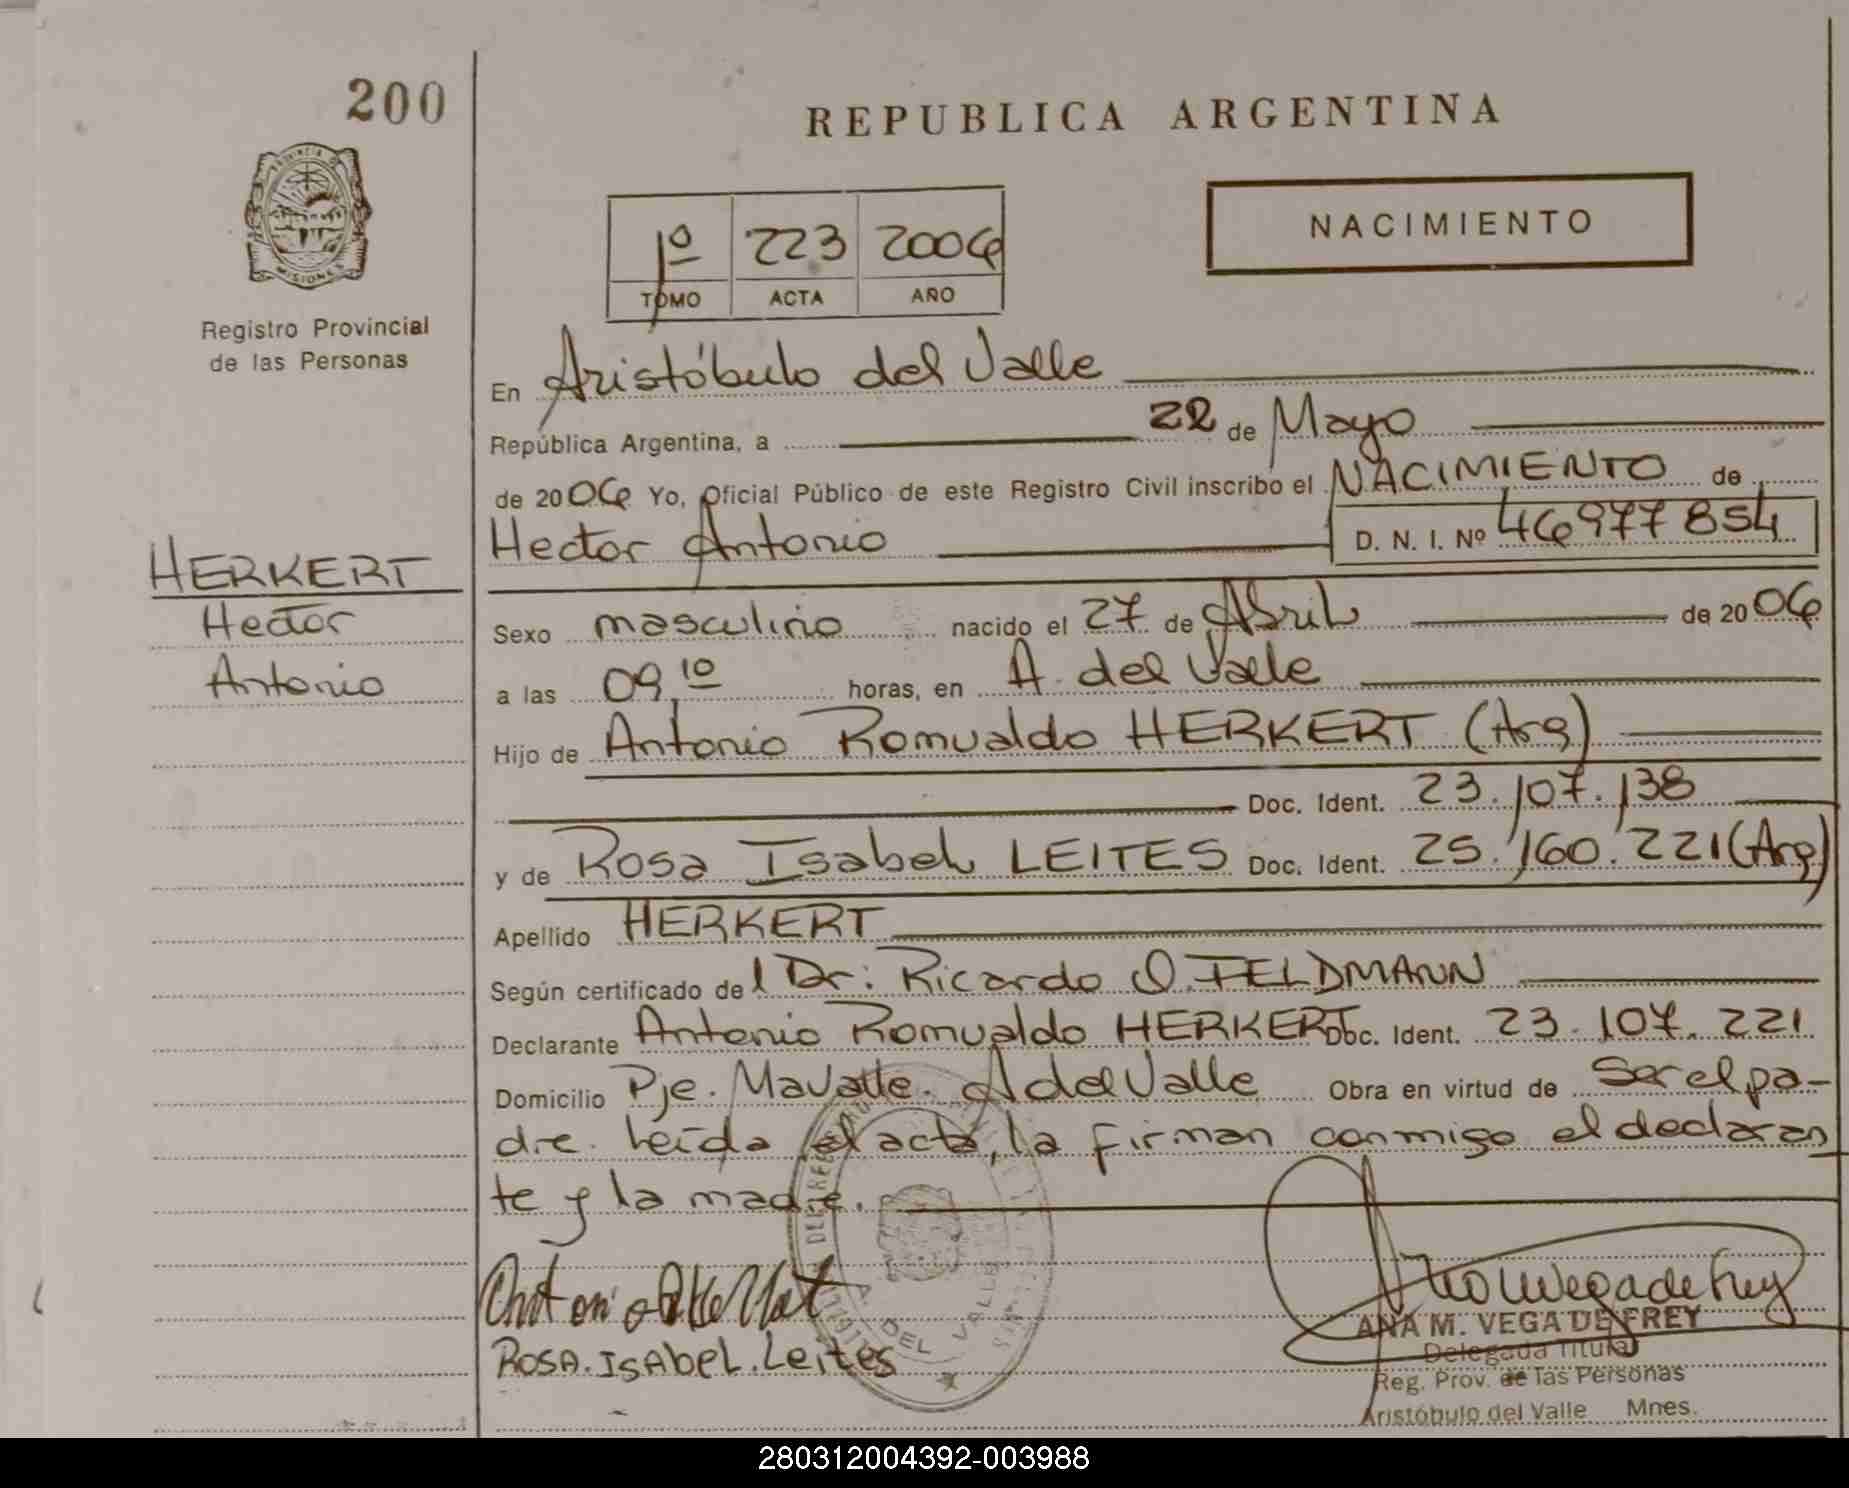 200
REPUBLICA ARGENTINA
PROVINCIA DE
MISIONES
Registro Provincial
de las Personas
1º 223 2006
TOMO ACTA AÑO
NACIMIENTO
En Aristóbulo del Valle
República Argentina, a 22 de Mayo
de 2006 Yo, Oficial Público de este Registro Civil inscribo el NACIMIENTO de
Hector Antonio D. N. I. Nº 46977854
HERKERT
Hector
Antonio
Sexo masculino nacido el 27 de Abril de 2006
a las 09,10 horas, en A. del Valle
Hijo de Antonio Romualdo HERKERT (Arg)
Doc. Ident. 23.107.138
y de Rosa Isabel LEITES Doc. Ident. 25.160.221 (Arg)
Apellido HERKERT
Según certificado del Dr: Ricardo O. FELDMANN
Declarante Antonio Romualdo HERKERT Doc. Ident. 23.107.221
Domicilio Pje. Mavalle. A del Valle Obra en virtud de Ser el pa-
dre. Leída el acta, la firman conmigo el declaran
te y la madre.
ROSA.ISAbeL.Leites
A. DEL VALLE
ANA M. VEGA DE FREY
Delegada Titular
Reg. Prov. de las Personas
Aristóbulo del Valle Mnes.
280312004392-003988